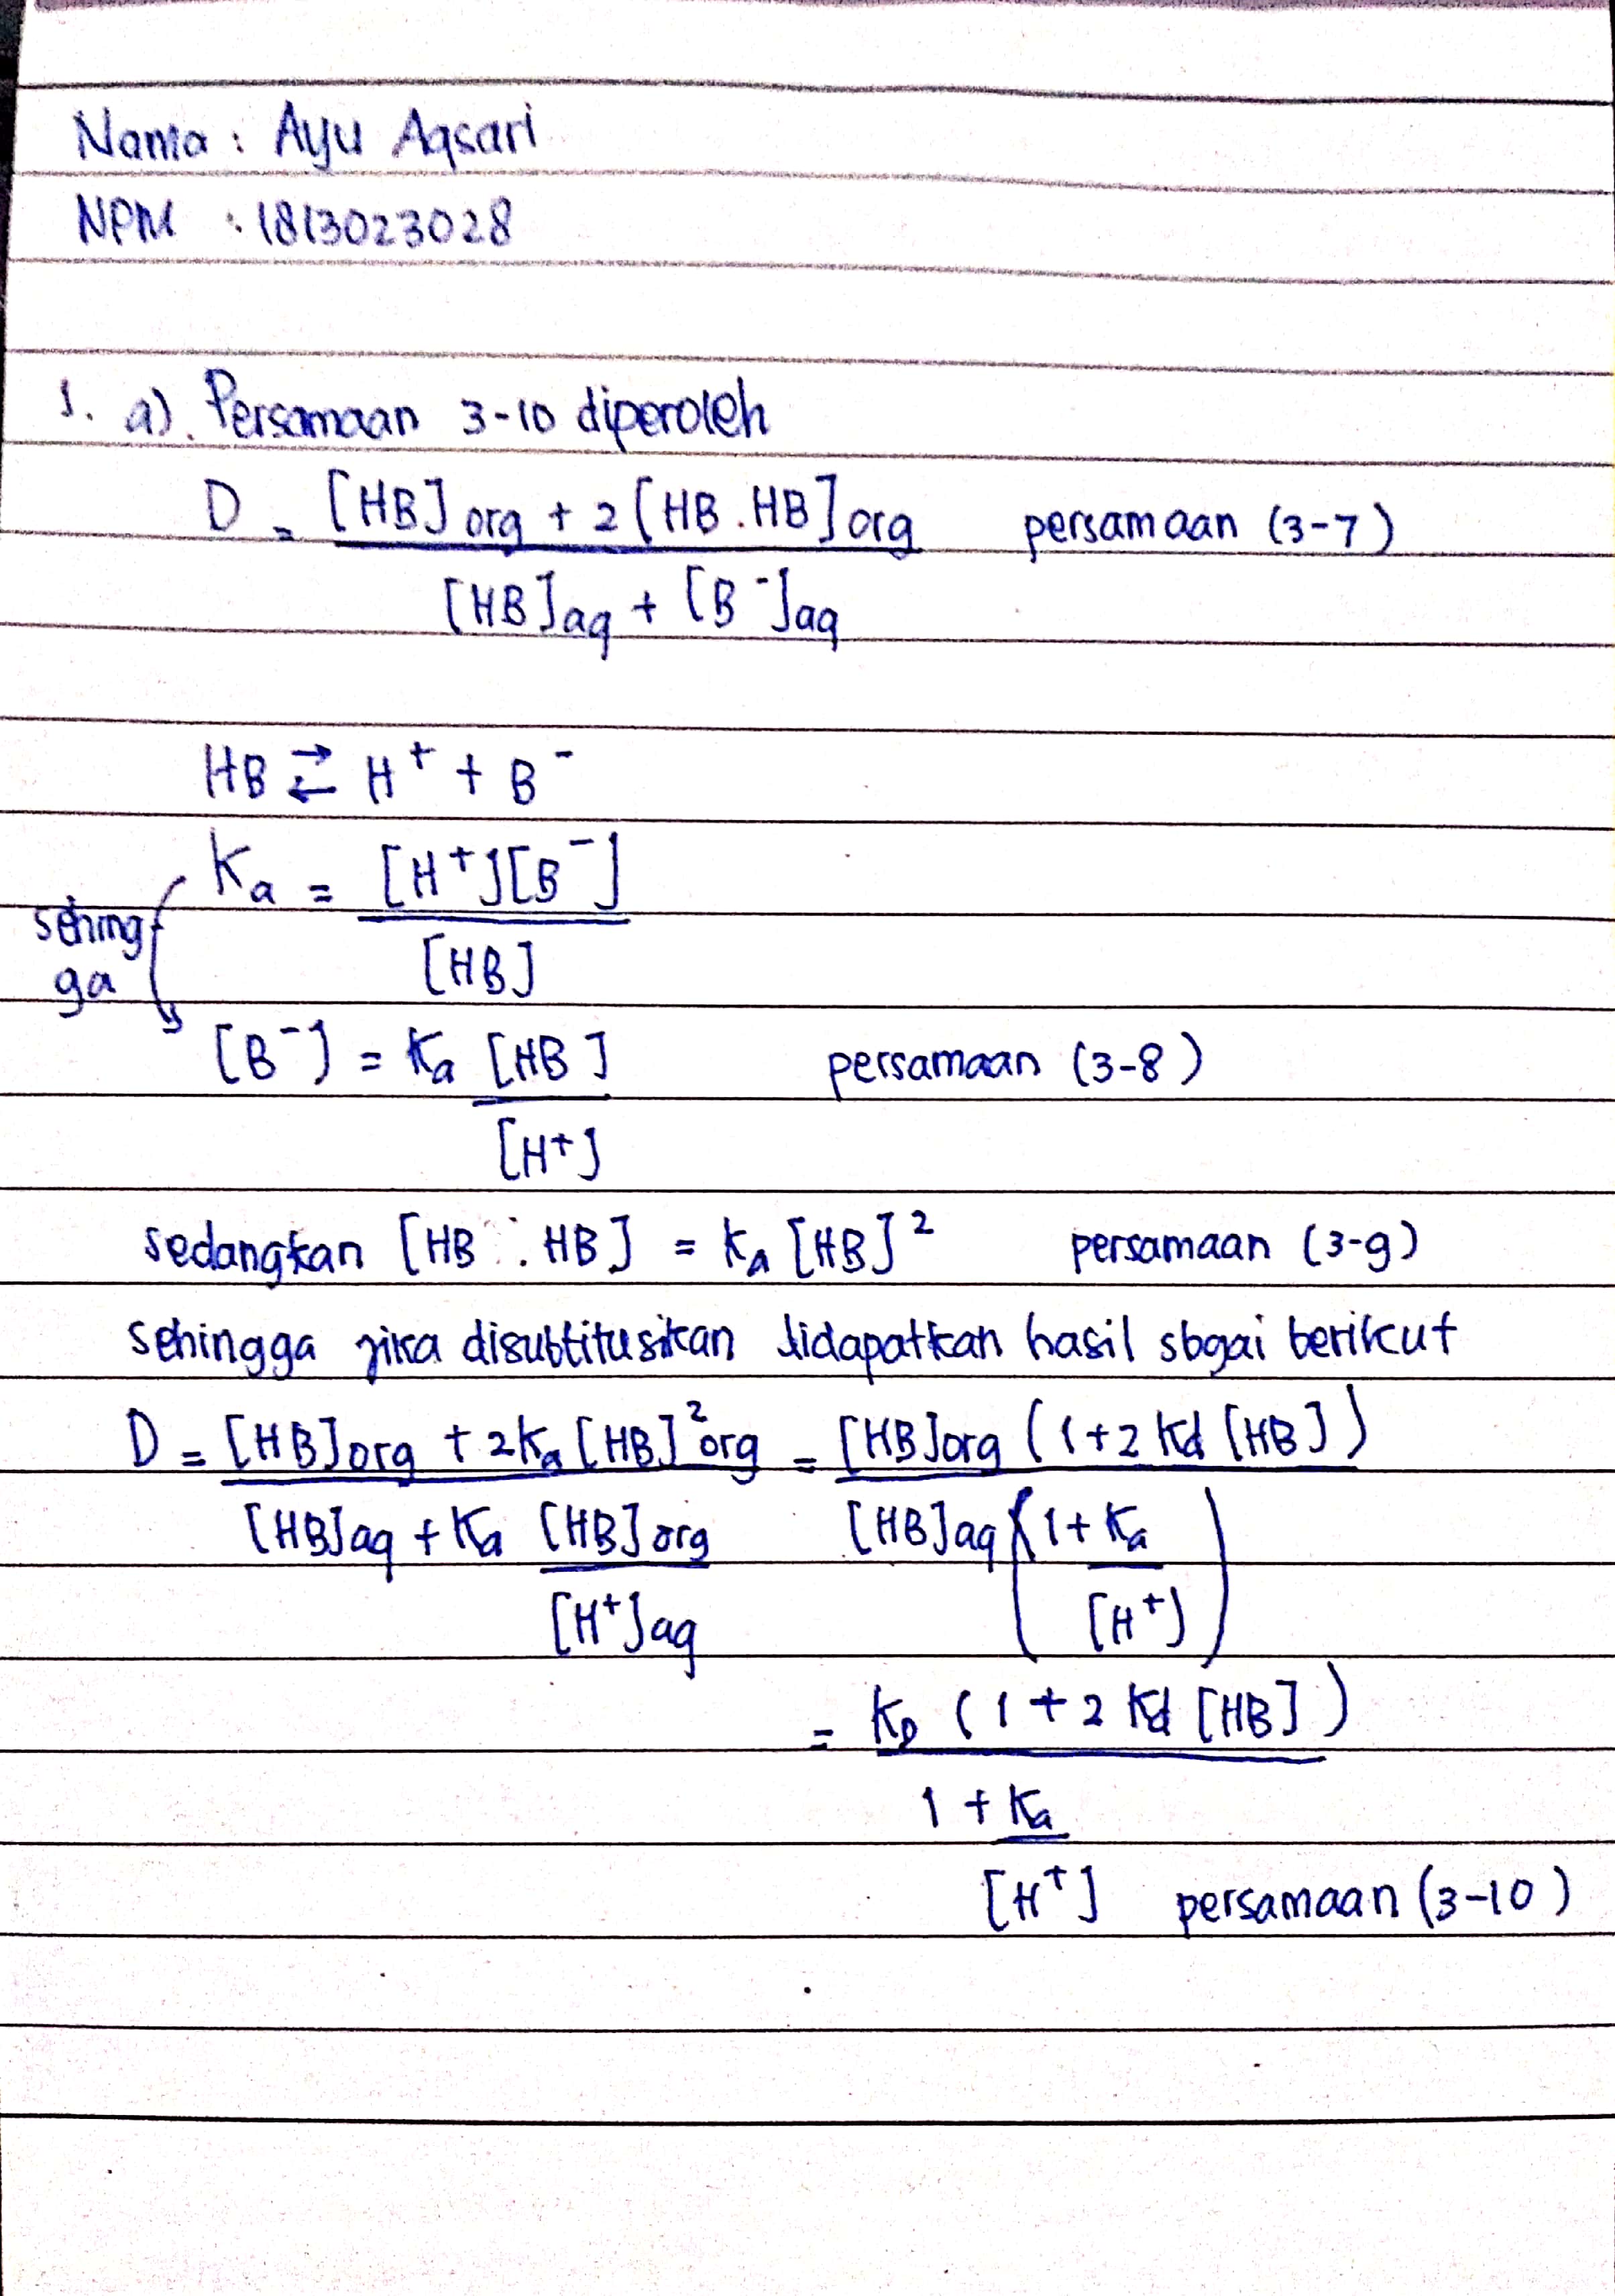 Nama : Ayu Aqsari
NPM : 1813023028
1. a). Persamaan 3-10 diperoleh
D = [HB]org + 2[HB.HB]org persamaan (3-7)
[HB]aq + [B⁻]aq
HB ⇄ H⁺ + B⁻
Ka = [H⁺][B⁻]
sehing
ga
[HB]
[B⁻] = Ka [HB] persamaan (3-8)
[H⁺]
sedangkan [HB . HB] = Ka [HB]² persamaan (3-9)
sehingga jika disubtitusikan didapatkan hasil sbgai berikut
D = [HB]org + 2Ka [HB]²org = [HB]org (1+2 Kd [HB])
[HB]aq + Ka [HB]org [HB]aq (1+ Ka)
[H⁺]aq [H⁺]
= KD (1 + 2 Kd [HB])
1 + Ka
[H⁺] persamaan (3-10)